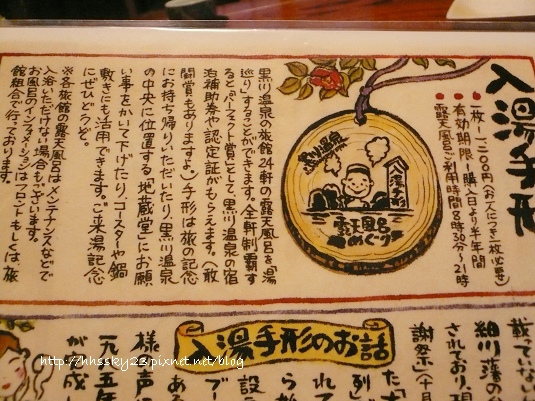 入湯手形
●一枚 一二〇〇円（お一人につき一枚必要）
●有効期限・購入日より半年間
●露天風呂ご利用時間8時30分〜21時
黒川温泉
入湯手形
露天風呂
めぐり
黒川温泉の旅館24軒の露天風呂を「湯
巡り」することができます。全軒制覇す
ると「パーフェクト賞」として、黒川温泉の宿
泊補助券や認定証がもらえます。（敢
闘賞もありますよ）手形は旅の記念
にお持ち帰りいただいたり、黒川温泉
の中央に位置する「地蔵堂」にお願
い事をかいて下げたり、コースターや鍋
敷きにも活用できます。ご来湯記念
にぜひどうぞ。
※各旅館の露天風呂はメンテナンスなどで
入浴いただけない場合もございます。
お風呂のインフォメーションはフロントもしくは旅
館組合で行っております。
入湯手形のお話
載っていない
細川藩の
されており、現
謝祭」（十月
http://hhssky23.pixnet.net/blog